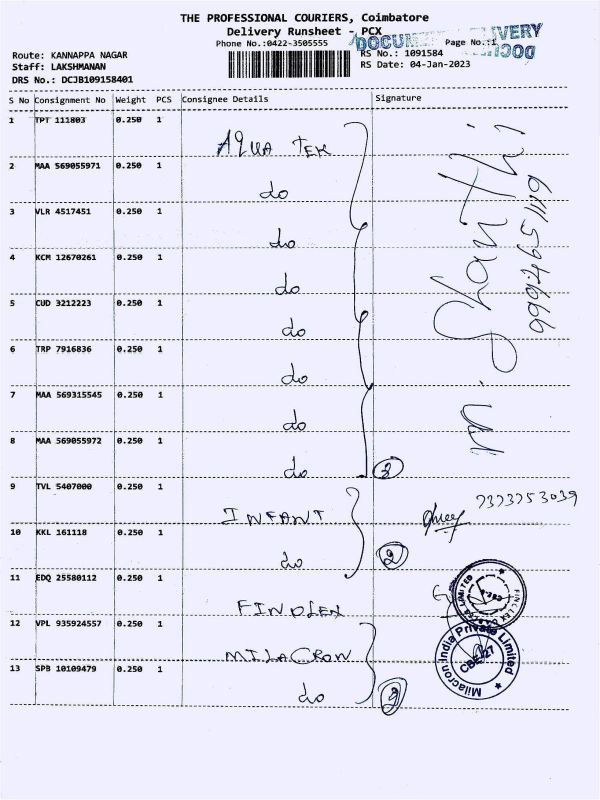 THE PROFESSIONAL COURIERS, Coimbatore
Delivery Runsheet - PCX
Phone No.:0422-3505555
Page No.:1
Route: KANNAPPA NAGAR
RS No.: 1091584
Staff: LAKSHMANAN
RS Date: 04-Jan-2023
DRS No.: DCJB109158401
S No Consignment No Weight PCS Consignee Details Signature
1 TPT 111803 0.250 1 AQUA TEK
2 MAA 569055971 0.250 1 do
3 VLR 4517451 0.250 1 do
4 KCM 12670261 0.250 1 do
5 CUD 3212223 0.250 1 do
6 TRP 7916836 0.250 1 do
7 MAA 569315545 0.250 1 do
8 MAA 569055972 0.250 1 do
m. Shanthi
9 TVL 5407000 0.250 1 INFANT
10 KKL 161118 0.250 1 do 2
11 EDQ 25580112 0.250 1
12 VPL 935924557 0.250 1 MILACRON
13 SPB 10109479 0.250 1 do
Milacron India Private Limited
CBE-27